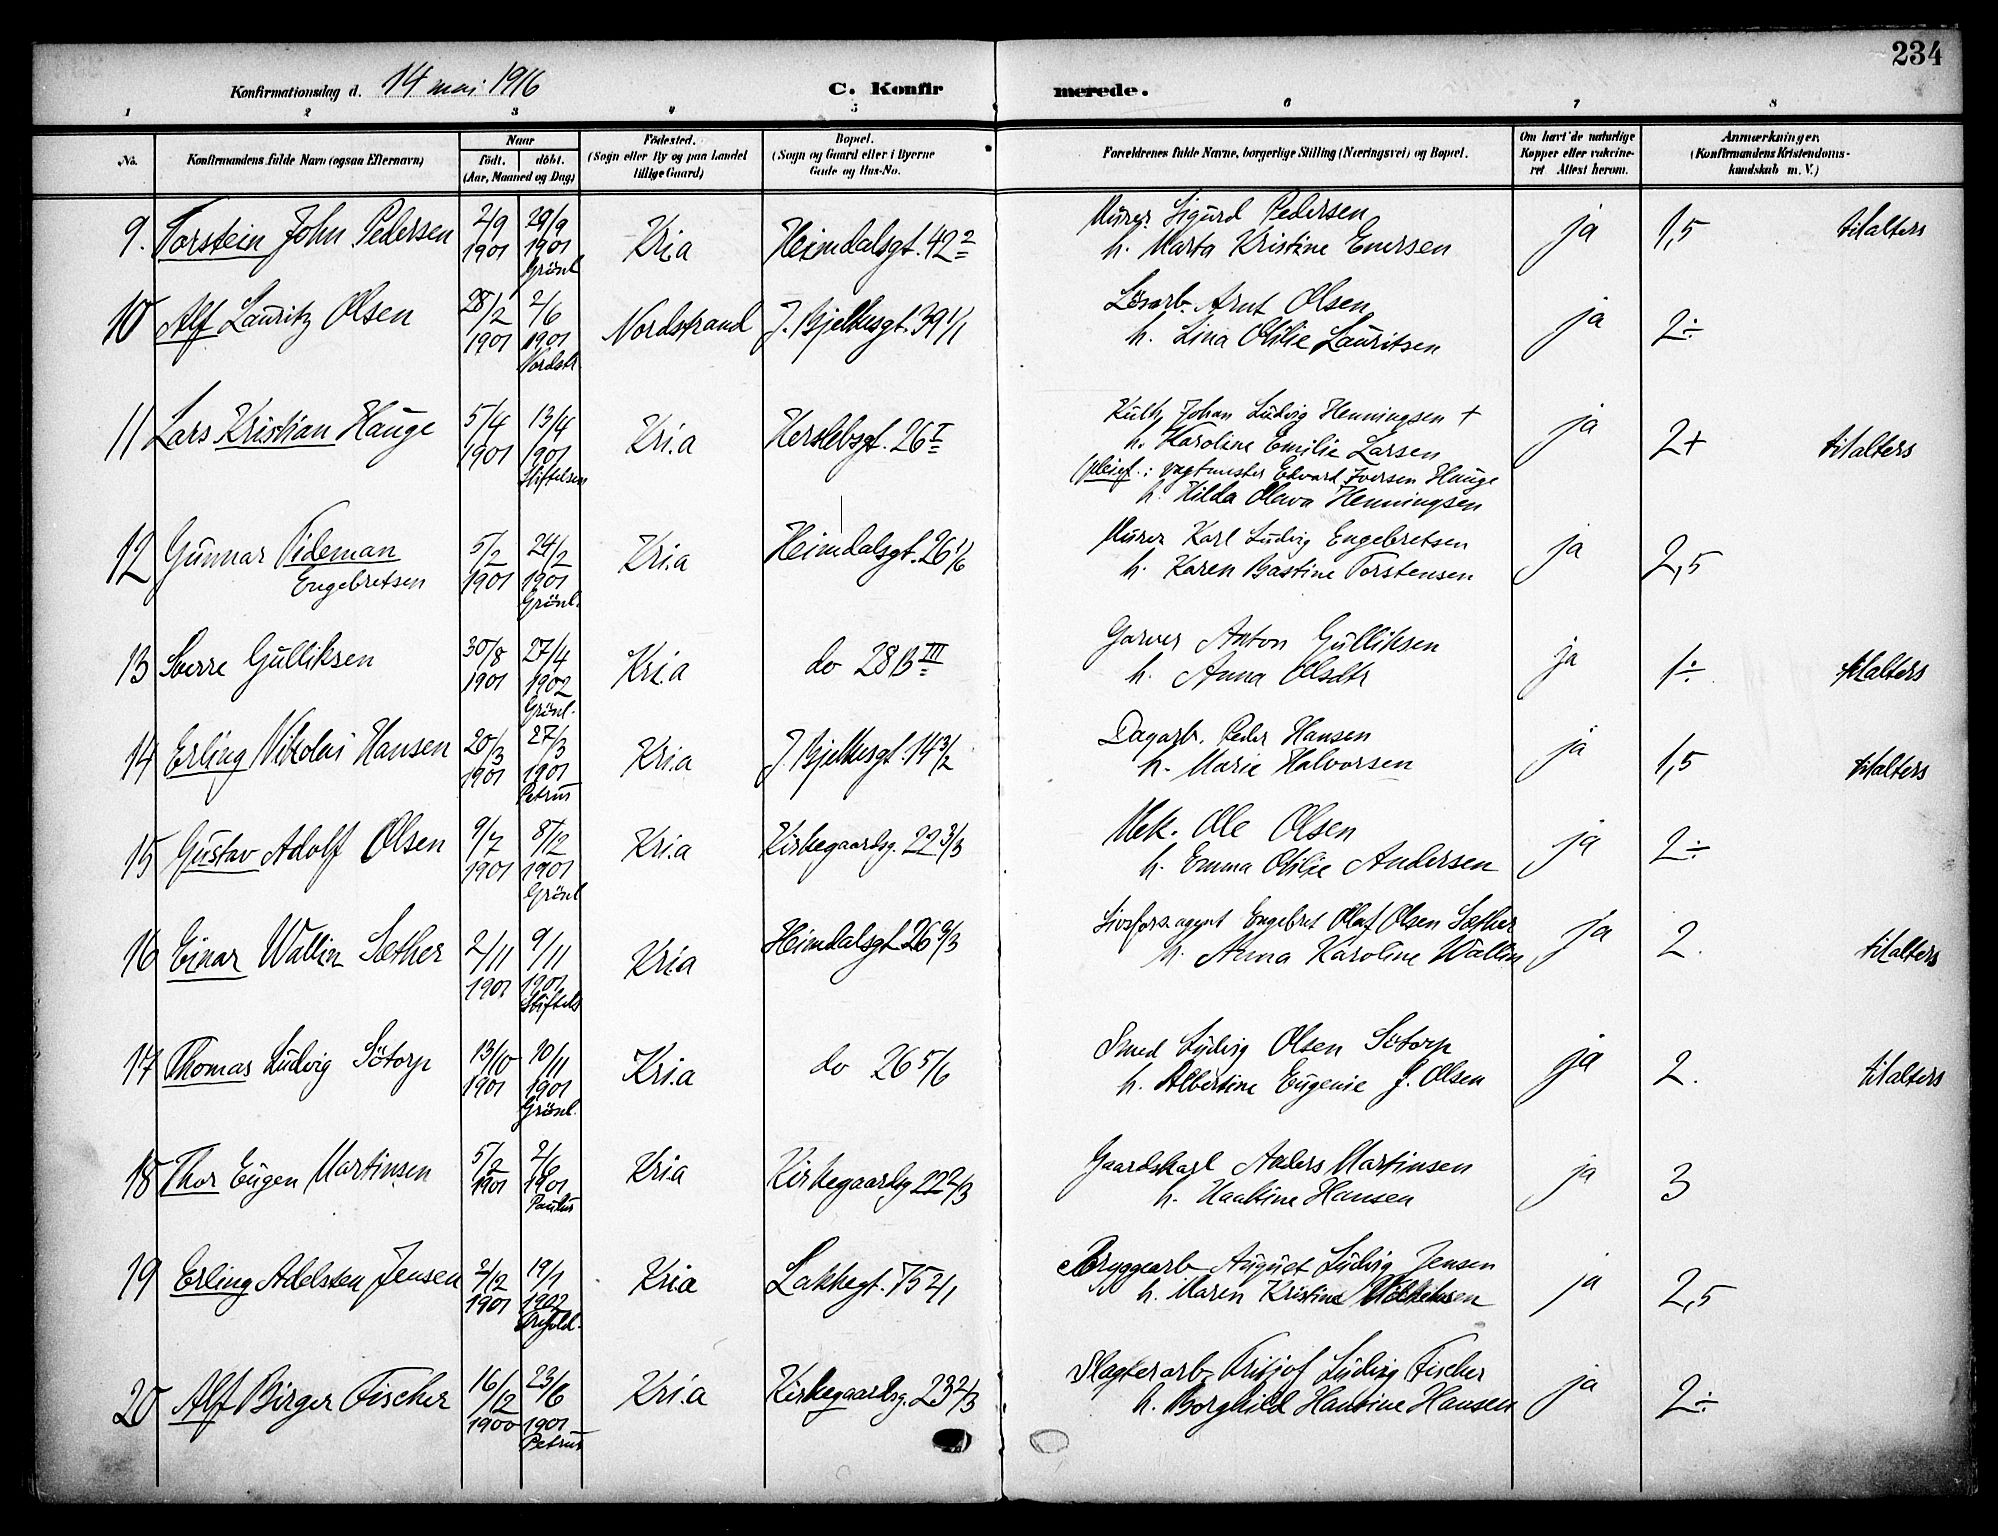 234
Konfirmationsdag d. 14 mai 1916
C. Konfirmerede.
1 2 3 4 5 6 7 8
No.
Konfirmandens fulde Navn (ogsaa Efternavn)
Naar
født. døbt.
(Aar, Maaned og Dag)
Fødested.
(Sogn eller By og paa Landet
tillige Gaard)
Bopæl.
(Sogn og Gaard eller i Byerne
Gade og Hus-No.
Forældrenes fulde Navne, borgerlige Stilling (Næringsvei) og Bopæl.
Om havt de naturlige
Kopper eller vakcine-
ret Attest herom.
Anmærkninger.
(Konfirmandens Kristendoms-
kundskab m. V.)
9. Torstein John Pedersen 2/9 1901 29/9 1901 Grönl Kria Heimdalsgt. 42 2 Murer Sigurd Pedersen ja 1,5 til alters
h. Marta Kristine Enersen
10 Alf Lauritz Olsen 28/2 1901 2/6 1901 Nordstr Nordstrand J. Bjelkesgt. 39 1/1 Lösarb. Arnt Olsen ja 2÷
h. Lina Otilie Lauritsen
11 Lars Kristian Hauge 5/4 1901 13/4 1901 Stiftelsen Kria Herslebsgt. 26 I Johan Ludvig Henningsen + ja 2+ til alters
h. Karoline Emilie Larsen
(pleief.: vagtmester Edvard Iversen Hauge
h. Hilda Olava Henningsen
12 Gunnar Tideman 5/2 1901 24/2 1901 Grönl. Kria Heimdalsgt. 26 1/6 Murer Karl Ludvig Engebretsen ja 2,5
Engebretsen h. Karen Bastine Torstensen
13 Sverre Gulliksen 30/8 1901 27/4 1902 Grönl. Kria do 28 B III Garver Anton Gulliksen ja 1÷ til alters
h. Anna Olsdtr
14 Erling Nikolai Hansen 20/3 1901 27/3 1901 Petrus Kria J. Bjelkesgt. 14 3/2 Dagarb. Peder Hansen ja 1,5 til alters
h. Marie Halvorsen
15 Gustav Adolf Olsen 9/7 1901 8/12 1901 Grönl Kria Kirkegaardsg. 22 3/3 Mek. Ole Olsen ja 2÷
h. Emma Otilie Andersen
16 Einar Wallin Sæther 2/11 1901 9/11 1901 Stiftels Kria Heimdalsgt 26 9/3 Livsfors.agent Engebret Olaf Olsen Sæther ja 2. til alters
h. Anna Karoline Wallin
17 Thomas Ludvig Sötorp 13/10 1901 10/11 1901 Grönl. Kria do 26 5/6 Smed Ludvig Olsen Sötorp ja 2. til alters
h. Albertine Eugenie J. Olsen
18 Thor Eugen Martinsen 5/2 1901 2/6 1901 Paulus Kria Kirkegaardsg 22 2/3 Gaardskarl Anders Martinsen ja 3
h. Hansen
19 Erling Adelsten Jensen 2/12 1901 19/1 1902 Kria Lakkegt. 75 2/1 Bryggearb August Ludvig Jensen ja 2,5
h. Maren Kristine
20 Alf Birger Fischer 16/12 1900 23/6 1901 Petrus Kria Kirkegaardsg. 23 2/3 Slagterarb. Fritjof Ludvig Fischer ja 2÷
h. Borghild Hansine Hansen